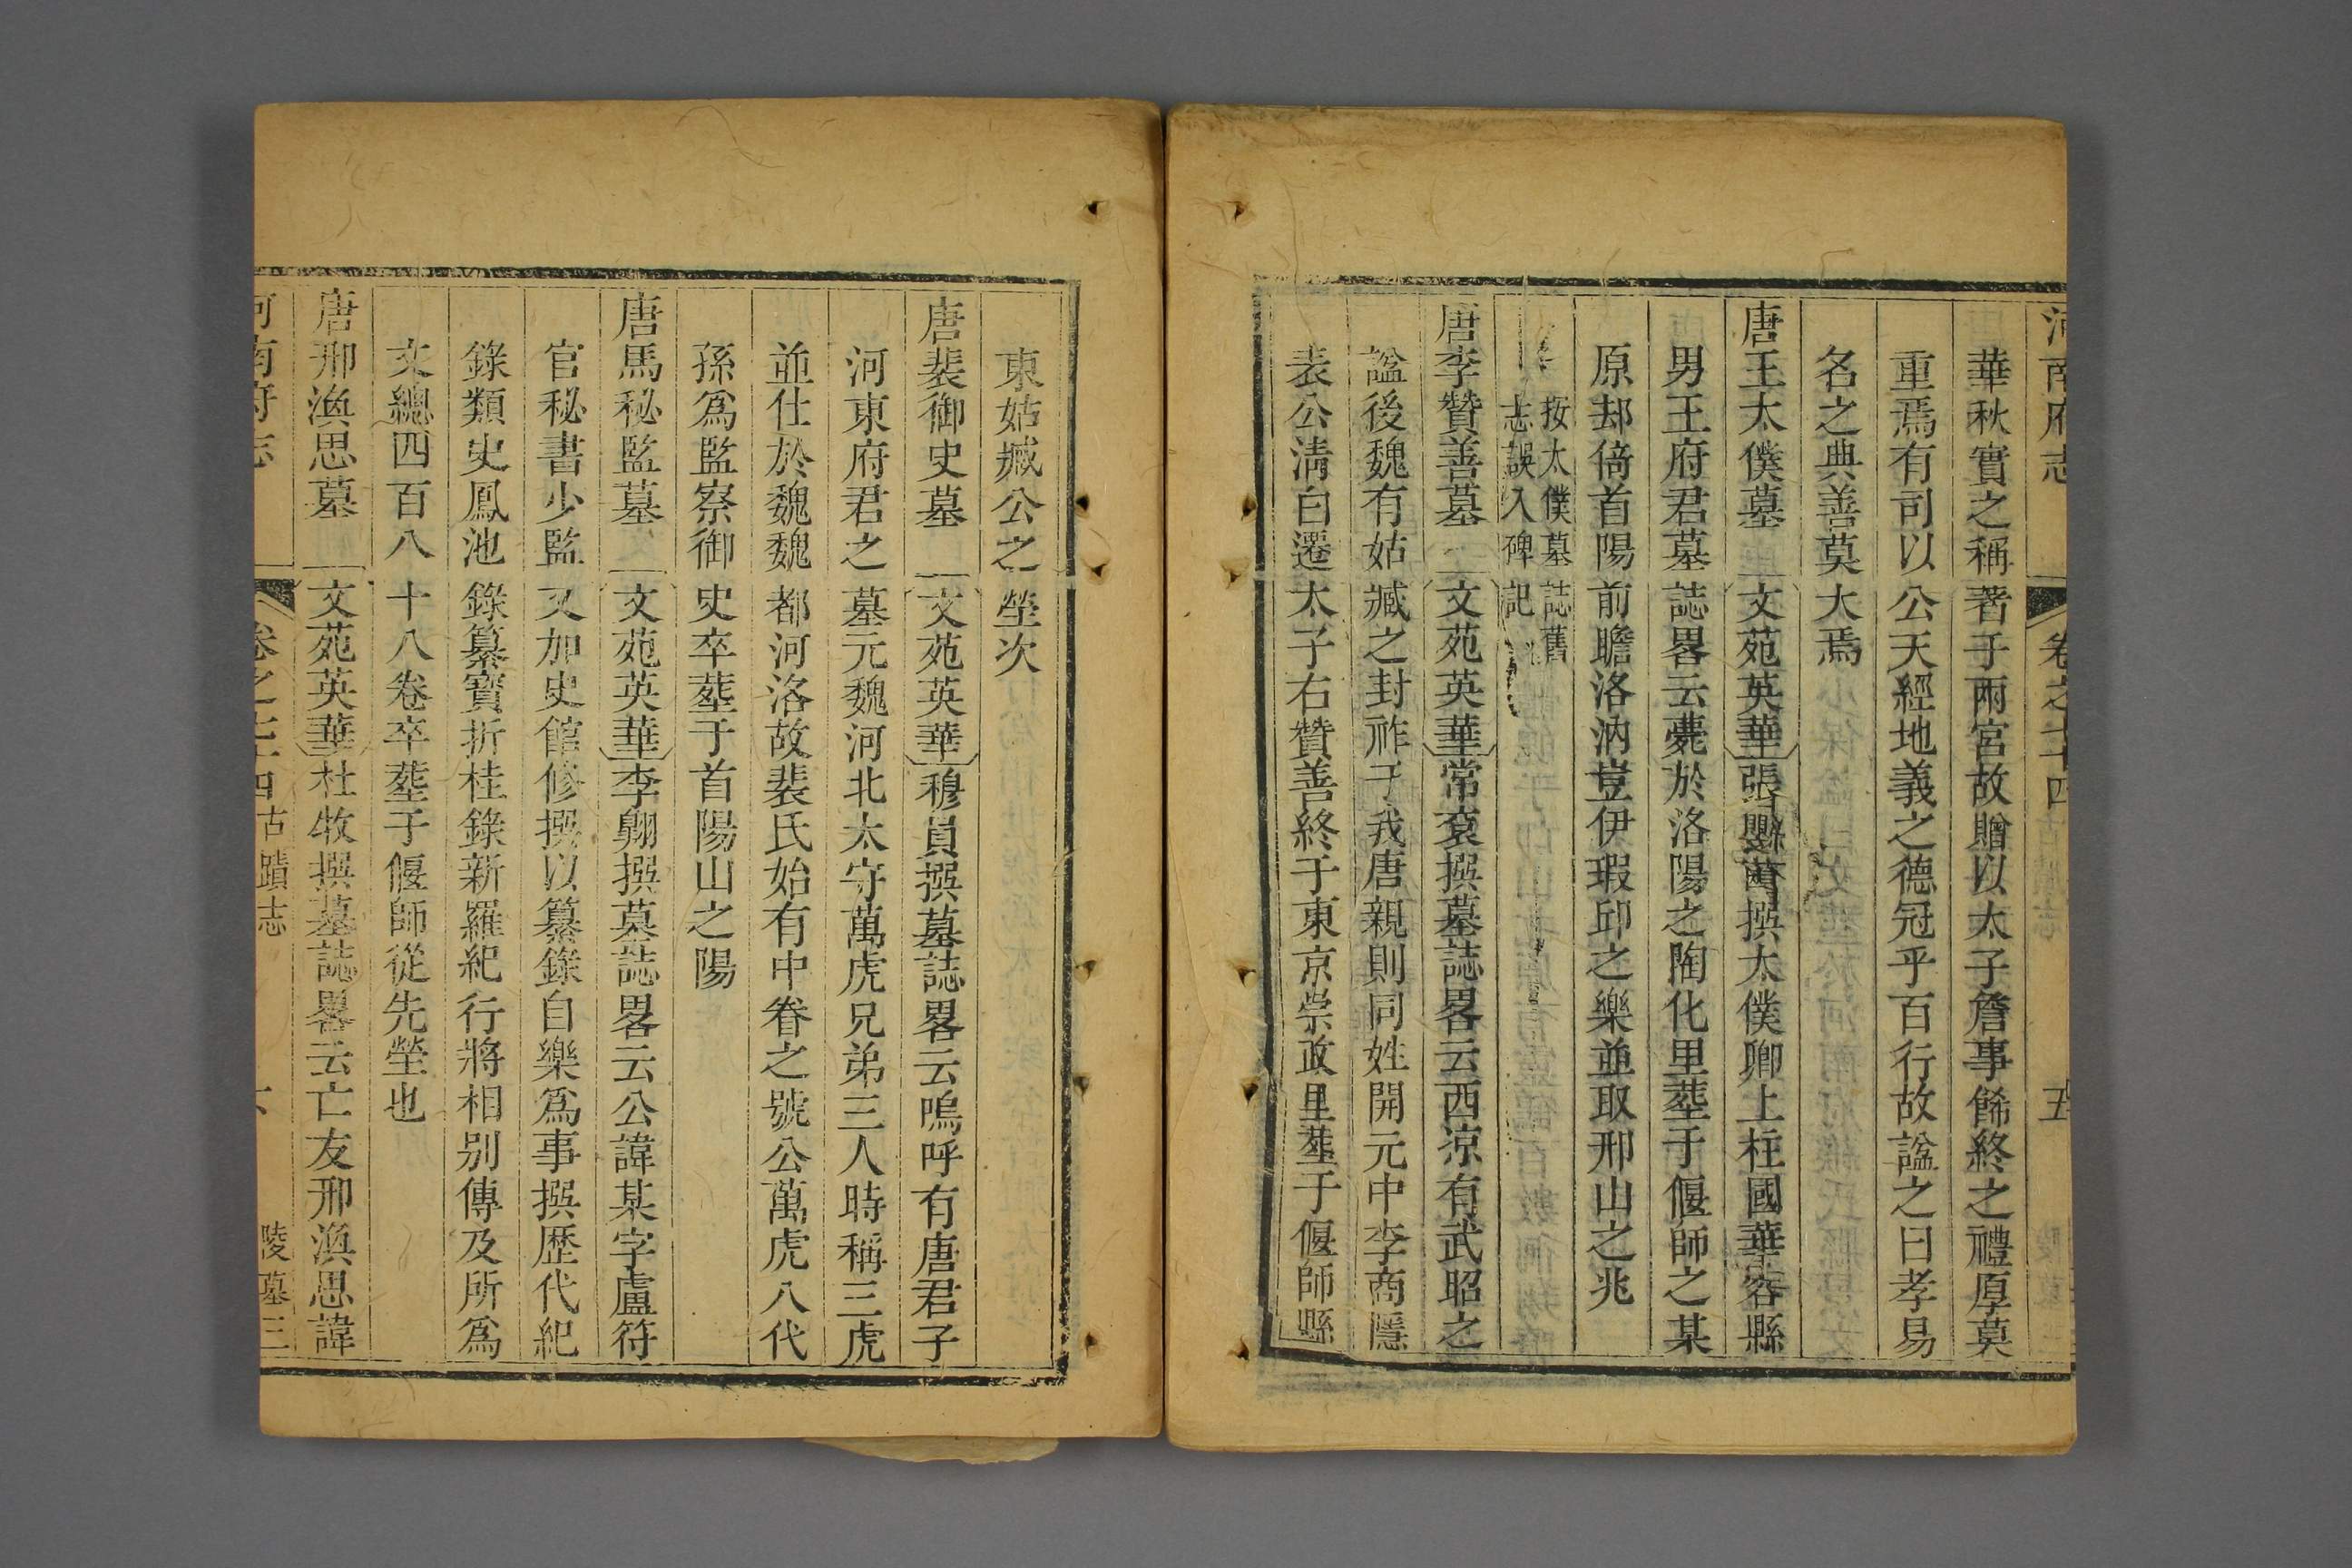 河南府志 卷之七十四 五
華秋實之稱著于兩宮故贈以太子詹事餙終之禮厚莫
重焉有司以公天經地義之德冠乎百行故諡之曰孝易
名之典善莫大焉
唐王太僕墓 文苑英華張 撰太僕卿上柱國華容縣
男王府君墓誌畧云薨於洛陽之陶化里塟于偃師之某
原却倚首陽前瞻洛汭豈伊瑕邱之樂並取邢山之兆
按太僕墓誌舊
志誤入碑記
唐李贊善墓 文苑英華常袞撰墓誌畧云西涼有武昭之
諡後魏有姑臧之封祚于我唐親則同姓開元中李商隱
表公淸白遷太子右贊善終于東京崇政里塟于偃師縣
東姑臧公之塋次
唐裴御史墓 文苑英華穆員撰墓誌畧云嗚呼有唐君子
河東府君之墓元魏河北太守萬虎兄弟三人時稱三虎
並仕於魏魏都河洛故裴氏始有中眷之號公萬虎八代
孫爲監察御史卒塟于首陽山之陽
唐馬秘監墓 文苑英華李翺撰墓誌畧云公諱某字盧符
官秘書少監又加史館修撰以纂錄自樂爲事撰歴代紀
錄類史鳳池錄纂寶折桂錄新羅紀行將相别傳及所爲
文總四百八十八卷卒塟于偃師從先塋也
唐邢渙思墓 文苑英華杜牧撰墓誌畧云亡友邢渙思諱
河南府志 卷之七十四古蹟志 六 陵墓三